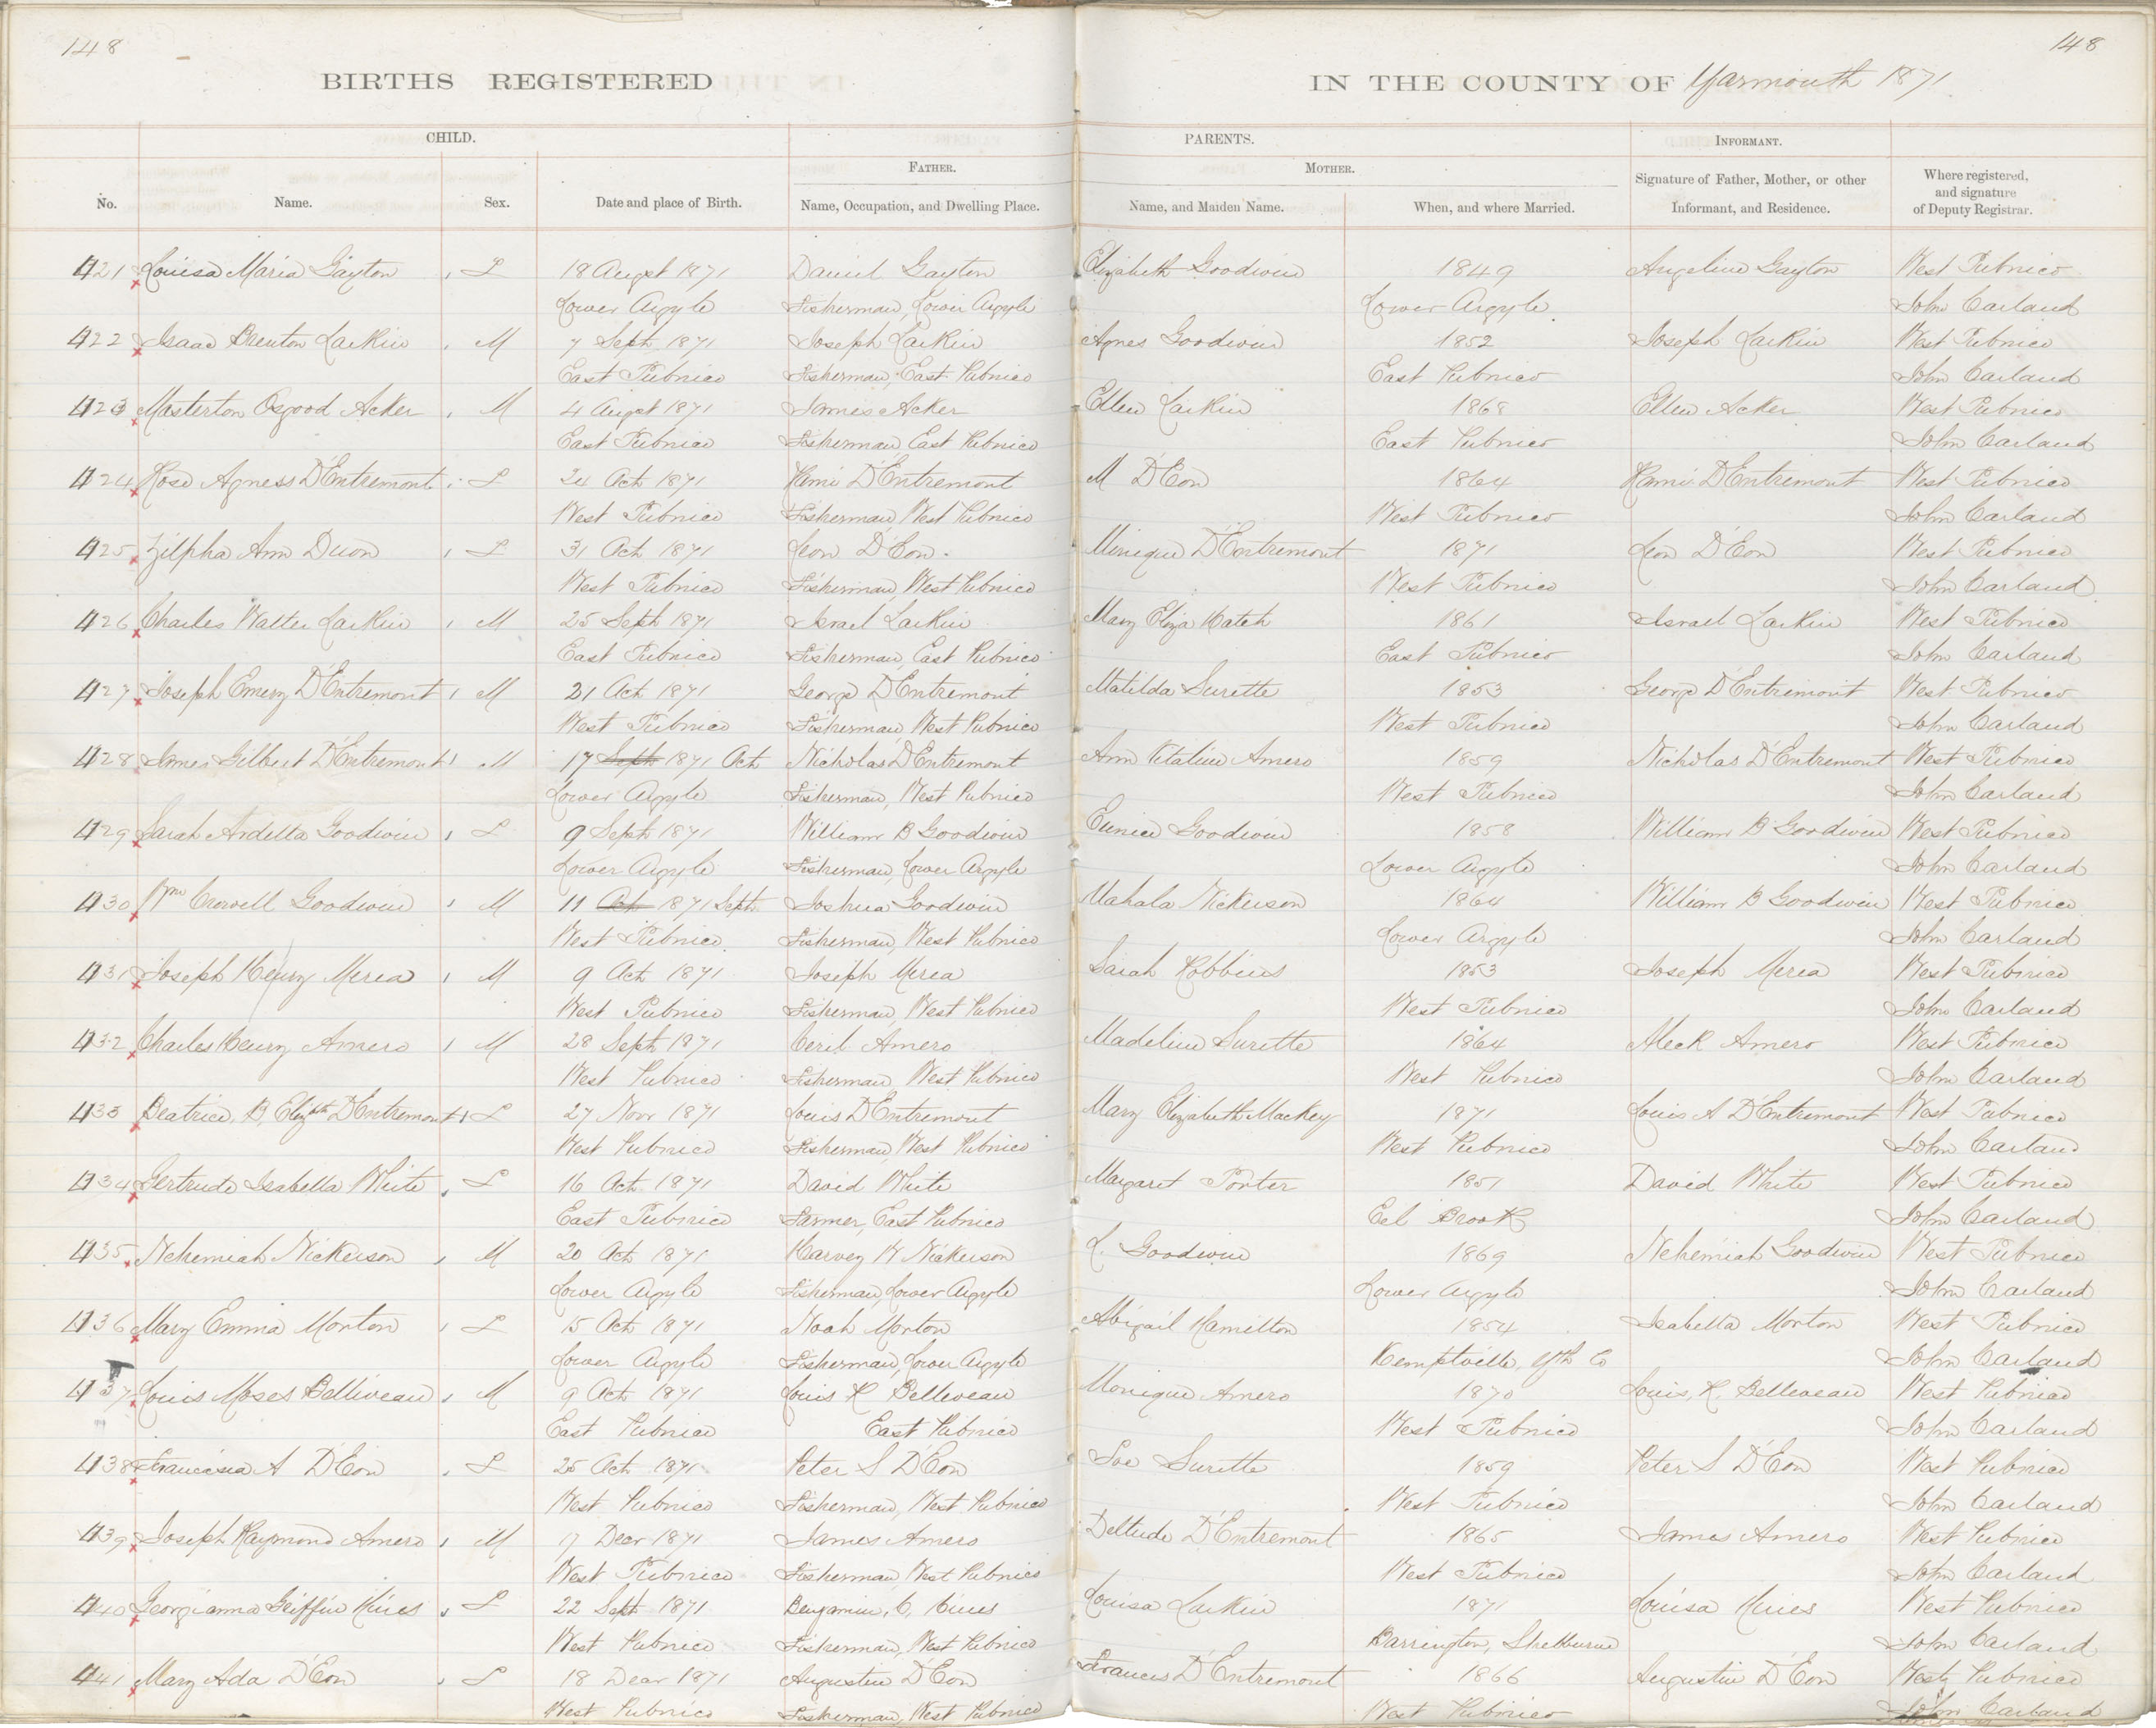 148
148
BIRTHS REGISTERED IN THE COUNTY OF Yarmouth 1871
CHILD. PARENTS. INFORMANT.
FATHER. MOTHER.
No. Name. Sex. Date and place of Birth. Name, Occupation, and Dwelling Place. Name, and Maiden Name. When, and where Married. Signature of Father, Mother, or other Informant, and Residence. Where registered, and signature of Deputy Registrar.
421 Louisa Maria Gayton F 18 Augst 1871 Daniel Gayton Elizabeth Goodwin 1849 Angeline Gayton West Pubnico
Lower Argyle Fisherman, Lower Argyle Lower Argyle John Carland
422 Isaac Brenton Larkin M 7 Sept 1871 Joseph Larkin Agnes Goodwin 1852 Joseph Larkin West Pubnico
East Pubnico Fisherman, East Pubnico East Pubnico John Carland
423 Masterton Osgood Acker M 4 Augst 1871 James Acker Ellen Larkin 1868 Ellen Acker West Pubnico
East Pubnico Fisherman East Pubnico East Pubnico John Carland
424 Rose Agness D'Entremont F 24 Oct 1871 Remi D'Entremont M D'Eon 1864 Remi D'Entremont West Pubnico
West Pubnico Fisherman, West Pubnico West Pubnico John Carland
425 Zilpha Ann Duon F 31 Oct 1871 Leon D'Eon. Minique D'Entremont 1871 Leon D'Eon West Pubnico
West Pubnico Fisherman, West Pubnico West Pubnico John Carland
426 Charles Walter Larkin M 25 Sept 1871 Israel Larkin Mary Eliza Hatch 1861 Israel Larkin West Pubnico
East Pubnico Fisherman, East Pubnico East Pubnico John Carland
427 Joseph Emery D'Entremont M 21 Oct 1871 George D'Entremont Matilda Surette 1853 George D'Entremont West Pubnico
West Pubnico Fisherman, West Pubnico West Pubnico John Carland
428 James Gilbert D'Entremont M 17 Sept 1871 Oct Nicholas D'Entremont Ann Vitaline Amero 1859 Nicholas D'Entremont West Pubnico
Lower Argyle Fisherman, West Pubnico West Pubnico John Carland
429 Sarah Ardella Goodwin F 9 Sept 1871 William B Goodwin Eunice Goodwin 1858 William B Goodwin West Pubnico
Lower Argyle Fisherman, Lower Argyle Lower Argyle John Carland
430 Wm Crowell Goodwin M 11 Oct 1871 Sept Joshua Goodwin Mahala Nickerson 1864 William B Goodwin West Pubnico
West Pubnico. Fisherman, West Pubnico Lower Argyle John Carland
431 Joseph Henry Merea M 9 Oct 1871 Joseph Merea Sarah Robbins 1853 Joseph Merea West Pubnico
West Pubnico Fisherman, West Pubnico West Pubnico John Carland
432 Charles Henry Amero M 28 Sept 1871 Ceril Amero Madeline Surette 1864 Aleck Amero West Pubnico
West Pubnico Fisherman, West Pubnico West Pubnico John Carland
433 Beatrice, B, Elizbth D'Entremont F 27 Novr 1871 Louis D'Entremont Mary Elizabeth Mackey 1871 Louis A D'Entremont West Pubnico
West Pubnico Fisherman, West Pubnico West Pubnico John Carland
434 Gertrude Isabella White F 16 Oct 1871 David White Margaret Porter 1851 David White West Pubnico
East Pubnico Farmer, East Pubnico Eel Brook John Carland
435 Nehemiah Nickerson M 20 Oct 1871 Harvey H Nickerson L. Goodwin 1869 Nehemiah Goodwin West Pubnico
Lower Argyle Fisherman, Lower Argyle Lower Argyle John Carland
436 Mary Emma Morton F 15 Oct 1871 Noah Morton Abigail Hamilton 1854 Isabella Morton West Pubnico
Lower Argyle Fisherman, Lower Argyle Kemptville, Yth Co John Carland
437 Louis Moses Belliveau M 9 Oct 1871 Louis H Belleveau Monique Amero 1870 Louis, H, Belleveau West Pubnico
East Pubnico East Pubnico West Pubnico John Carland
438 A D'Eon F 25 Oct 1871 Peter S D'Eon Surette 1859 Peter S D'Eon West Pubnico
West Pubnico Fisherman, West Pubnico West Pubnico John Carland
439 Joseph Raymond Amero M 17 Decr 1871 James Amero Deltude D'Entremont 1865 James Amero West Pubnico
West Pubnico Fisherman, West Pubnico West Pubnico John Carland
440 Georgianna Griffin Hines F 22 Sept 1871 Benjamin, C, Hines Louisa Larkin 1871 Louisa Hines West Pubnico
West Pubnico Fisherman, West Pubnico Barrington, Shelburne John Carland
441 Mary Ada D'Eon F 18 Decr 1871 Augustin D'Eon Frances D'Entremont 1866 Augustin D'Eon West Pubnico
West Pubnico Fisherman, West Pubnico West Pubnico John Carland